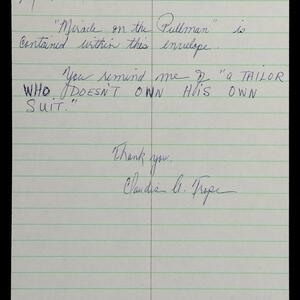 "Miracle on the Pullman" is
contained within this envelope.
You remind me of "a TAILOR
WHO DOESN'T OWN HIS OWN
SUIT."
Thank you,
Claudia G. Trope